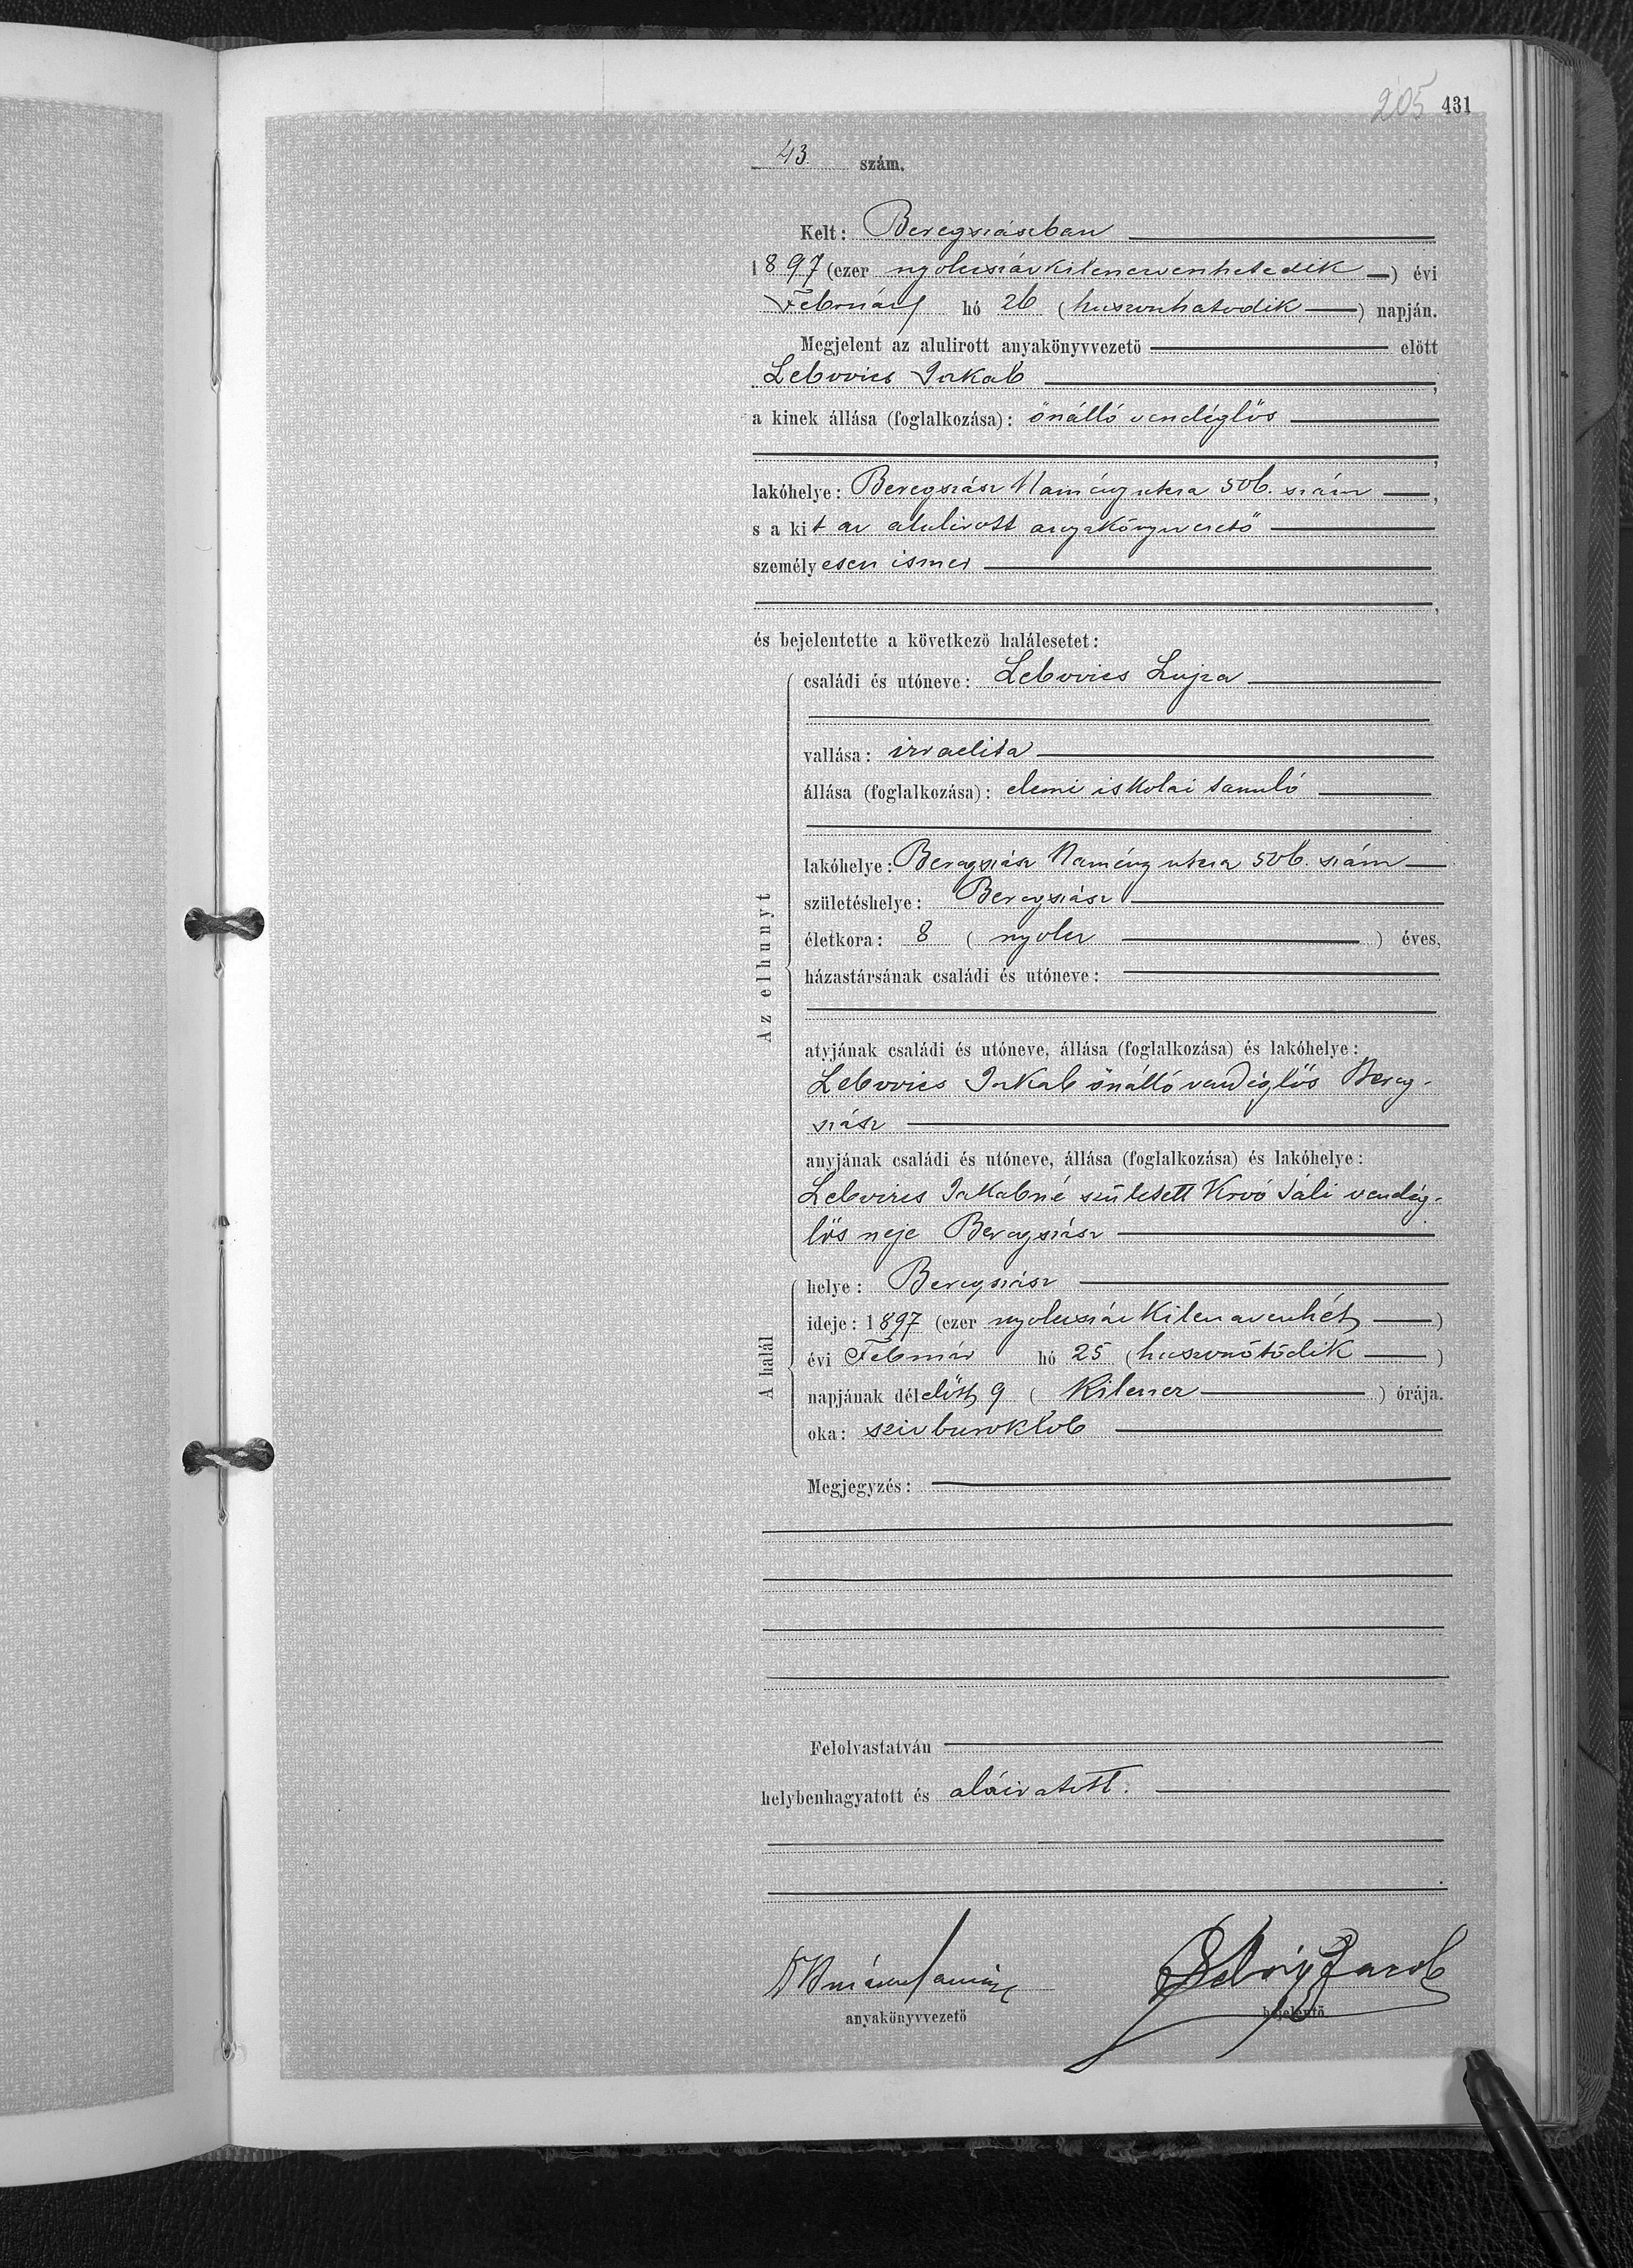 205 431
43 szám.
Kelt: Beregszászban
1897 (ezer nyolczszázkilenczvenhetedik) évi
Február hó 26 (huszonhatodik) napján.
Megjelent az alulirott anyakönyvvezető előtt
Lebovics Jakab,
a kinek állása (foglalkozása): önálló vendéglős
,
lakóhelye: Beregszász Namény utcza 506. szám,
s a kit az alulirott anyakönyvvezető
személyesen ismer
,
és bejelentette a következő halálesetet:
Az elhunyt
családi és utóneve: Lebovics Lujza
vallása: izraelita
állása (foglalkozása): elemi iskolai tanuló
lakóhelye: Beregszász Namény utcza 506. szám
születéshelye: Beregszász
életkora: 8 (nyolcz) éves,
házastársának családi és utóneve:
atyjának családi és utóneve, állása (foglalkozása) és lakóhelye:
Lebovics Jakab önálló vendéglős Bereg-
szász
anyjának családi és utóneve, állása (foglalkozása) és lakóhelye:
Lebovics Jakabné született Króó Táli vendég-
lős neje Beregszász
A halál
helye: Beregszász
ideje: 1897 (ezer nyolczszázkilenczvenhét)
évi Február hó 25 (huszonötödik)
napjának délelőtt 9 (kilencz) órája.
oka: szivburoklob
Megjegyzés:
Felolvastatván
helybenhagyatott és aláiratott.
anyakönyvvezető
bejelentő